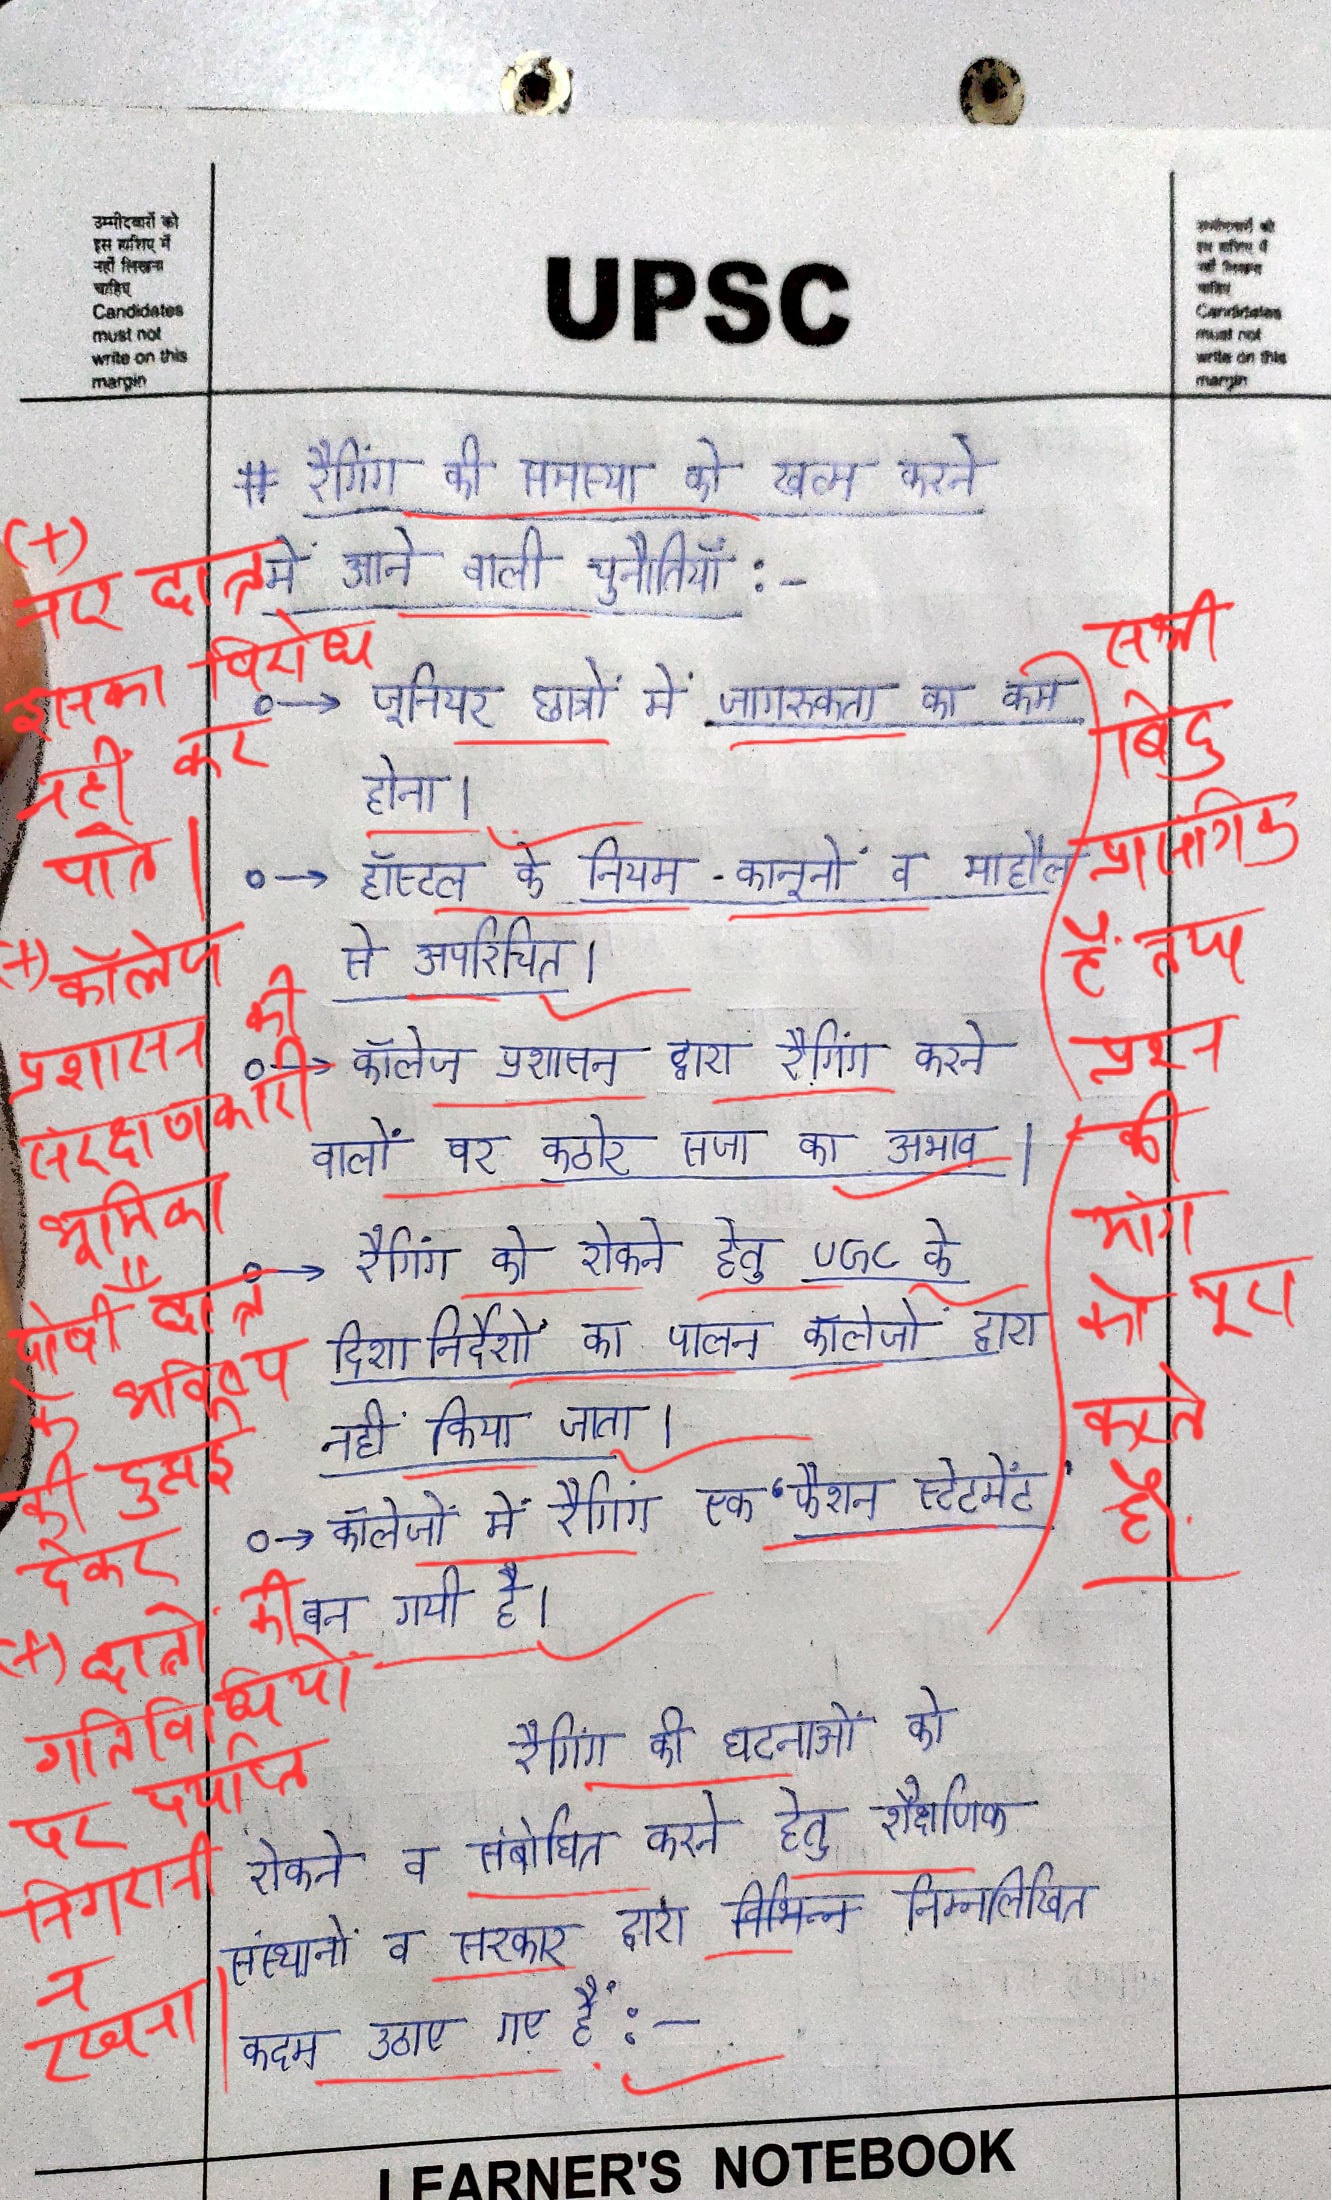 उम्मीदवारों को
इस हाशिए में
नहीं लिखना
चाहिए
Candidates
must not
write on this
margin
UPSC
उम्मीदवारों को
इस हाशिए में
नहीं लिखना
चाहिए
Candidates
must not
write on this
margin
# रैगिंग की समस्या को खत्म करने
में आने वाली चुनौतियाँ :-
→ जूनियर छात्रों में जागरुकता का कम
होना।
→ हॉस्टल के नियम-कानूनों व माहौल
से अपरिचित।
→ कॉलेज प्रशासन द्वारा रैगिंग करने
वालों पर कठोर सजा का अभाव।
→ रैगिंग को रोकने हेतु UGC के
दिशा निर्देशों का पालन कॉलेजों द्वारा
नहीं किया जाता।
→ कॉलेजों में रैगिंग एक 'फैशन स्टेटमेंट'
बन गयी है।
रैगिंग की घटनाओं को
रोकने व संबोधित करने हेतु शैक्षणिक
संस्थानों व सरकार द्वारा विभिन्न निम्नलिखित
कदम उठाए गए हैं :-
(+)
नए छात्र
इसका विरोध
नहीं कर
पाते।
(+) कॉलेज
प्रशासन की
संरक्षणकारी
भूमिका
दोषी छात्र
के भविष्य
की दुहाई
देकर
(+) छात्रों की
गतिविधियों
पर पर्याप्त
निगरानी
न
रखना।
सभी
बिंदु
प्रासंगिक
हैं तथा
प्रश्न
की
मांग
को पूरा
करते
हैं।
LEARNER'S NOTEBOOK